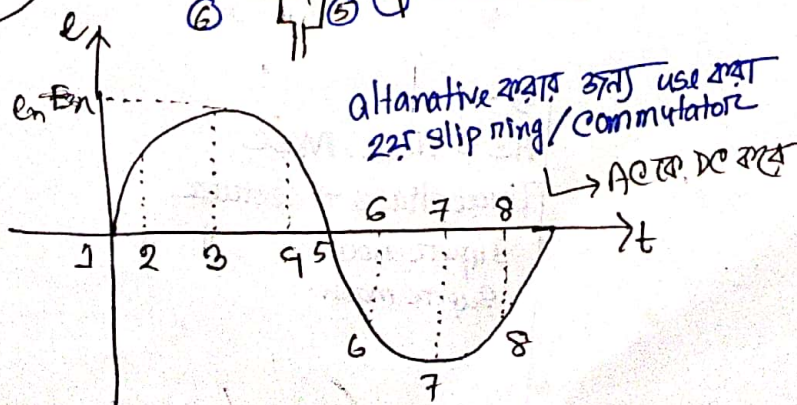 ⑥ ⑤
e
altanative করার জন্য use করা
হয় slip ring/commutator
↳ AC কে DC করে
6 7 8
t
1 2 3 4 5
6 8
7